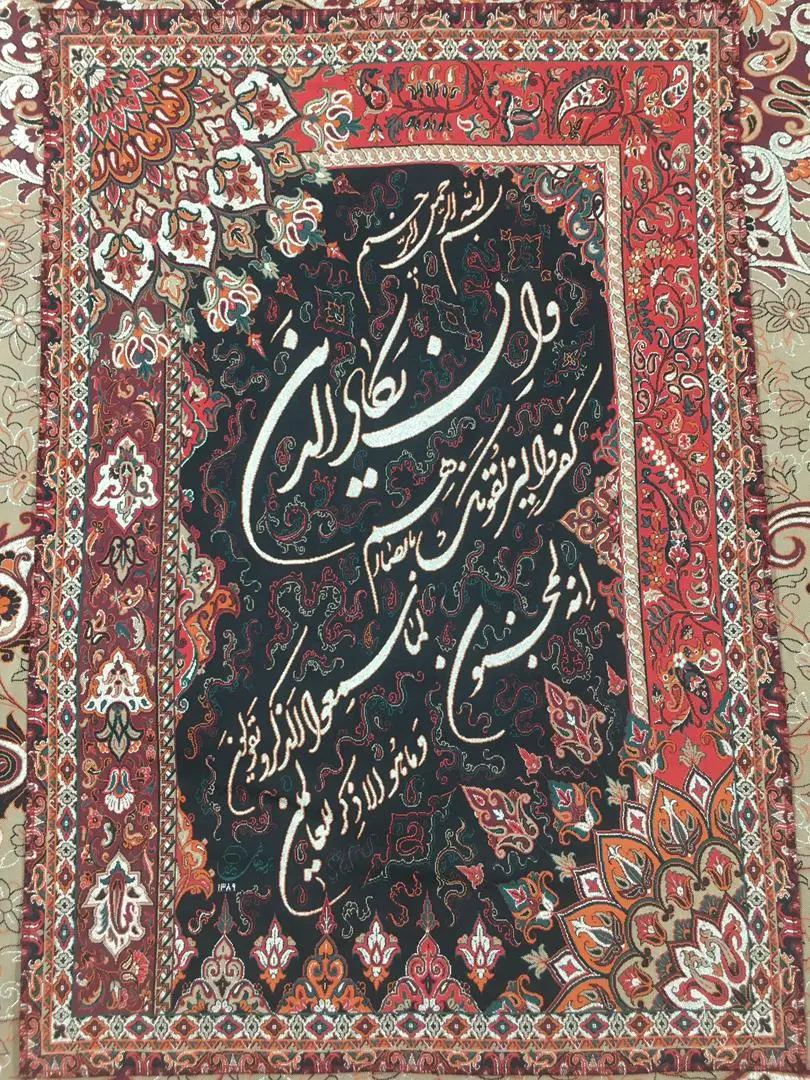 بسم الله الرحمن الرحیم
وان یکاد الذین
کفروا لیزلقونک
بابصارهم
لما سمعوا الذکر و یقولون
انه لمجنون
و ما هو الا ذکر للعالمین
۱۳۸۹